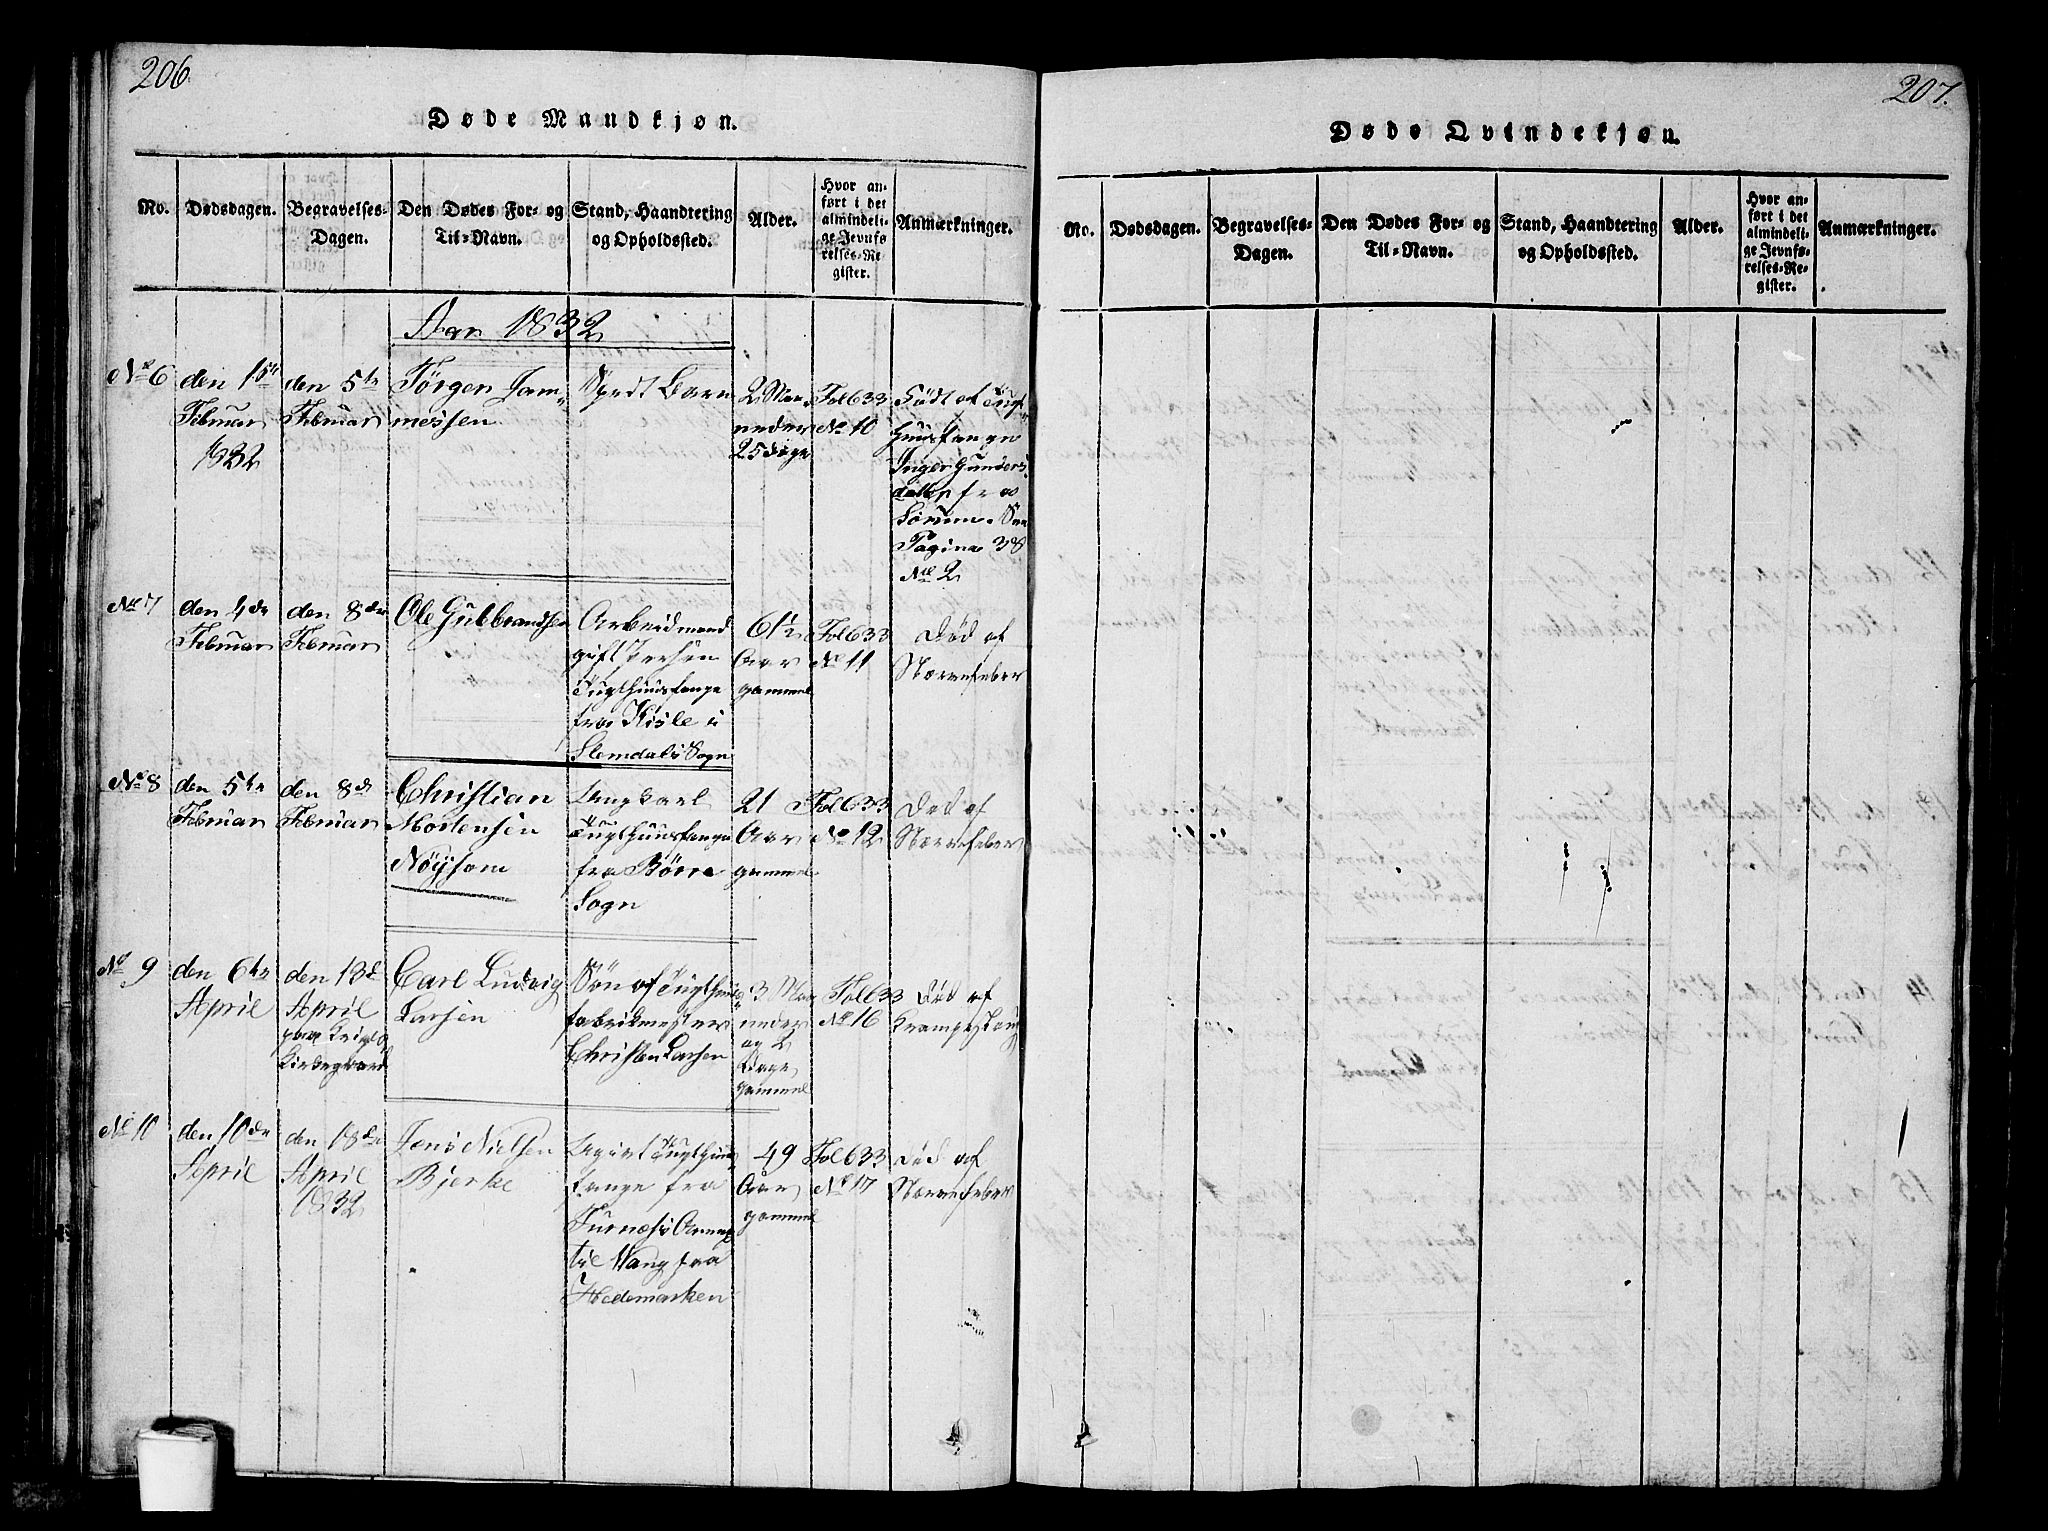 206.
Døde Mandkjøn.
No.
Dødsdagen.
Begravelses-
Dagen.
Den Dødes For- og
Til-Navn.
Stand, Haandtering
og Opholdssted.
Alder.
Hvor an-
ført i det
almindeli-
ge Jevnfø
relses-Re
gister.
Anmærkninger.
Aar 1832
No 6
den 1ste
Februar
1832
den 5te
Februar
Jørgen Jam-
messen
Spedt Barn
2 Maa-
neder
25 dage
Fol 633
No 10
Født af Tugt-
huusfange
Inger Gunders-
datter fra
Sørum. See
Pagina 38
No 2
No 7
den 4de
Februar
den 8de
Februar
Ole Gulbrandsen
Arbeidmand
gift
Tugthuusfange
fra Kisle i
Slemdals Sogn
61½
Aar
gammel
Fol 633
No 11
Død af
Nervefeber
No 8
den 5te
Februar
den 8de
Februar
Christian
Mortensen
Nøysom
Ungkarl
Tugthuusfange
fra Børre
Sogn
21
Aar
gammel
Fol 633
No 12
Død af
Nervefeber
No 9
den 6te
April
den 13de
April
paa
Kirkegaard
Carl Ludvig
Larsen
Søn af Tugthuus-
fabrikmester
Christen Larsen
3 Maa
neder
og 2
Dage
gammel
Fol 633
No 16
Død af
Krampeslag
No 10
den 10de
April
den 18de
April
1832
Jens Nielsen
Bjerke
Ugivt Tugthuus-
fange fra
Furnæs Annex
til Vang fra
Hedemarken
49
Aar
gammel
Fol 633
No 17
Død af
Nervefeber
207.
Døde Qvindekjøn.
No.
Dødsdagen.
Begravelses-
Dagen.
Den Dødes For- og
Til-Navn.
Stand, Haandtering
og Opholdssted.
Alder.
Hvor an-
ført i det
almindeli-
ge Jevnfø-
relses-Re-
gister.
Anmærkninger.